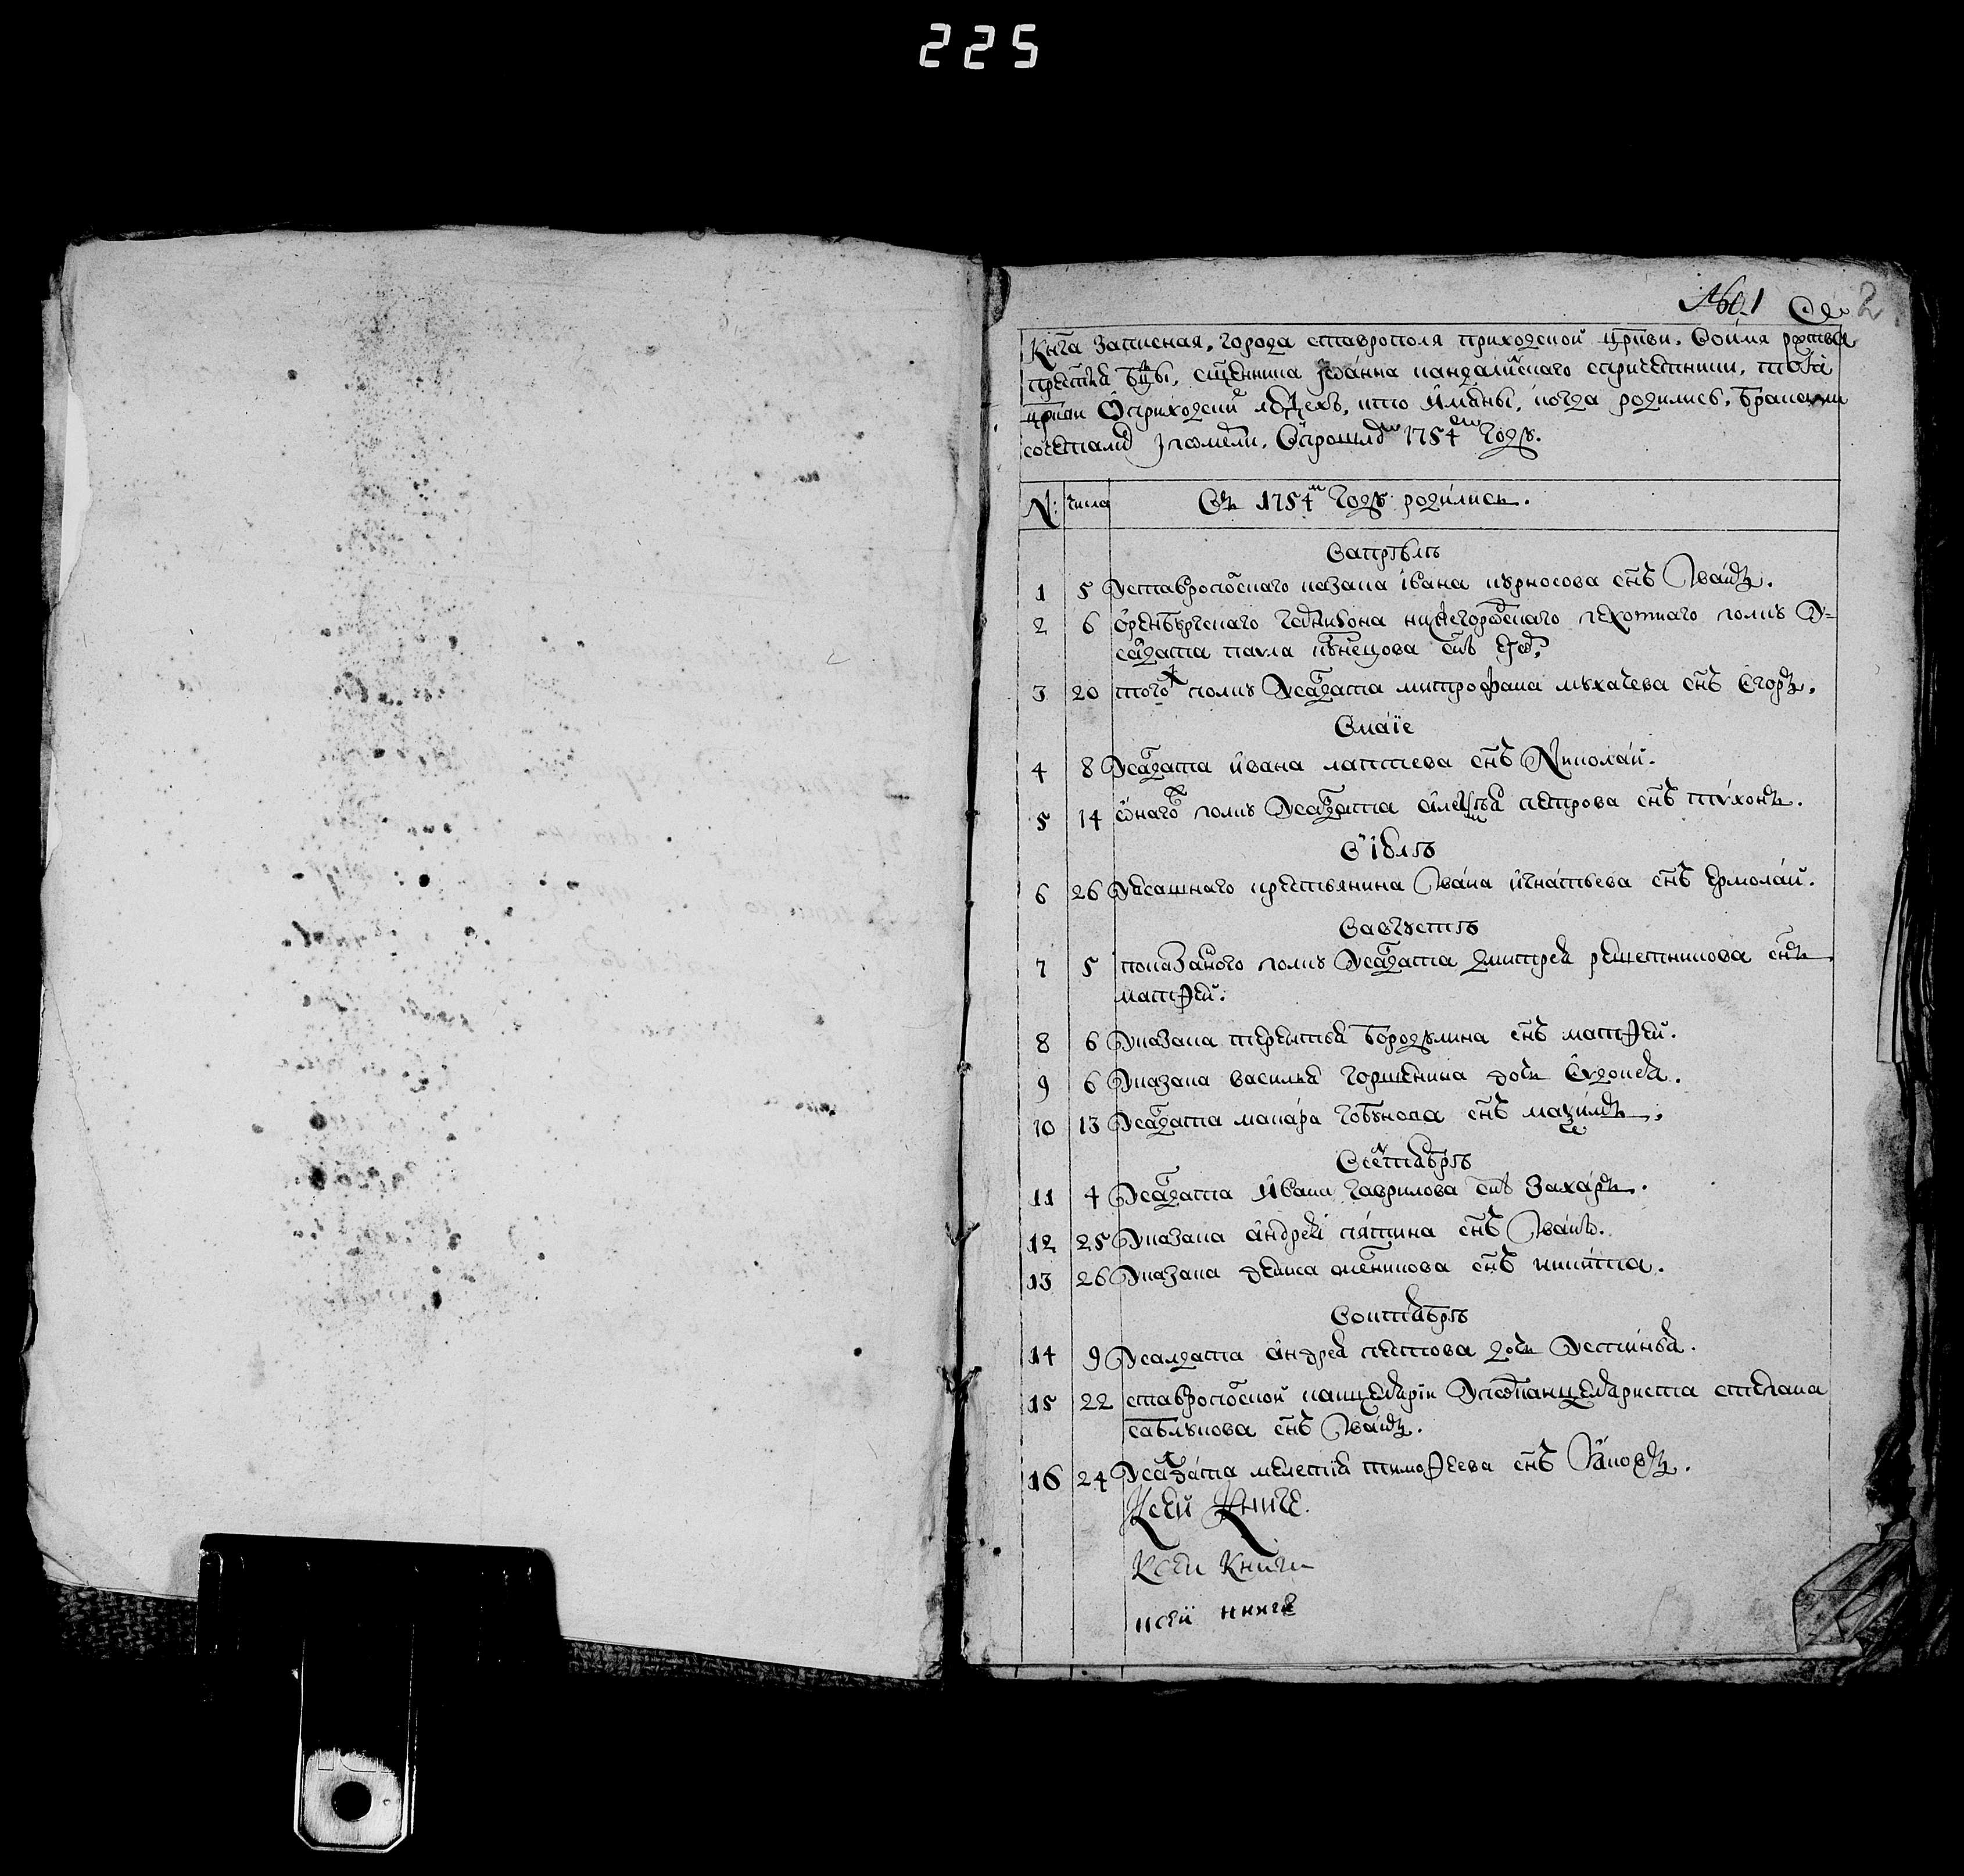 225
№ 1
2
Книга записная, города ставрополя приходской цркви, воимя рождства
престыя бцы, сщенника иоанна кандалинскаго спричетники, тоя
цркви оприходскихъ людехъ, кто имяны, когда родились, бракомъ
сочетались и померли, впрошломъ 1754мъ году.
N: числа Въ 1754м году родились.
Вапрѣлѣ
1 5 Уставропольскаго казака ивана курносова снъ Иванъ.
2 6 оренбургскаго гарнизона нижегородскаго пехотнаго полку У-
салдата павла кузнецова снъ
3 20 того полку Усалдата митрофана мухачева снъ Егоръ.
Вмаие
4 8 Усалдата ивана лаптева снъ Николай.
5 14 онаго полку Усалдата алексѣя петрова снъ тихонъ.
Виюлѣ
6 26 Уясашнаго крестьянина Ивана игнатьева снъ ермолай.
Вавгустѣ
7 5 показаннаго полку Усалдата дмитрея решетникова снъ
матфей.
8 6 Указака терентья бородулина снъ матфей.
9 6 Указака василья горшенина дочь Евдокея.
10 13 Усалдата макара гобунова снъ максимъ.
Всентябрѣ
11 4 Усалдата Ивана гаврилова снъ Захаръ.
12 25 Указака андрея пятина снъ Иванъ.
13 26 Указака снъ никита.
Воктябрѣ
14 9 Усалдата андрея пестова дочь Устинья.
15 22 ставропольской канцелярии Уподканцеляриста степана
саблукова снъ Иванъ.
16 24 Усалдата мелентия тимофеева снъ Яковъ.
Ксей Книге.
Ксеи Книги
ксей книге